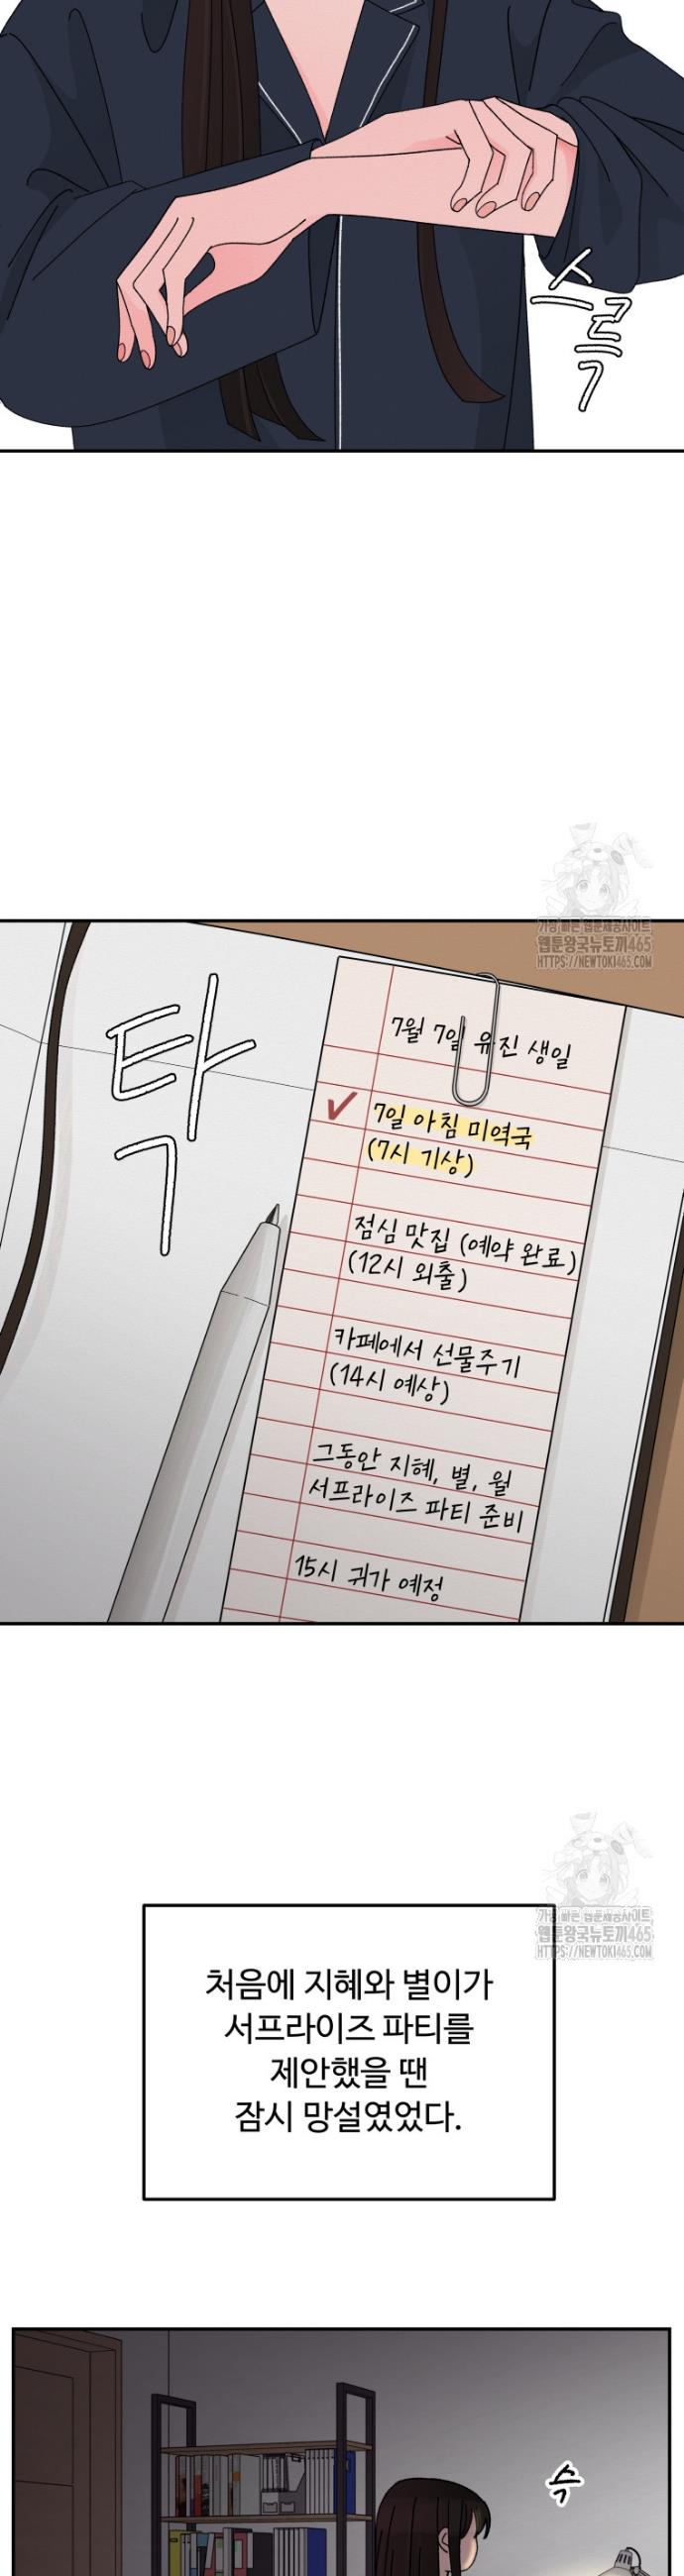 스륵
가장 빠른 웹툰제공사이트
웹툰왕국뉴토끼465
HTTPS://NEWTOKI465.COM
탁
7월 7일 유진 생일
✓ 7일 아침 미역국
(7시 기상)
점심 맛집 (예약 완료)
(12시 외출)
카페에서 선물주기
(14시 예상)
그동안 지혜, 별, 월
서프라이즈 파티 준비
15시 귀가 예정
가장 빠른 웹툰제공사이트
웹툰왕국뉴토끼465
HTTPS://NEWTOKI465.COM
처음에 지혜와 별이가
서프라이즈 파티를
제안했을 땐
잠시 망설였었다.
슥